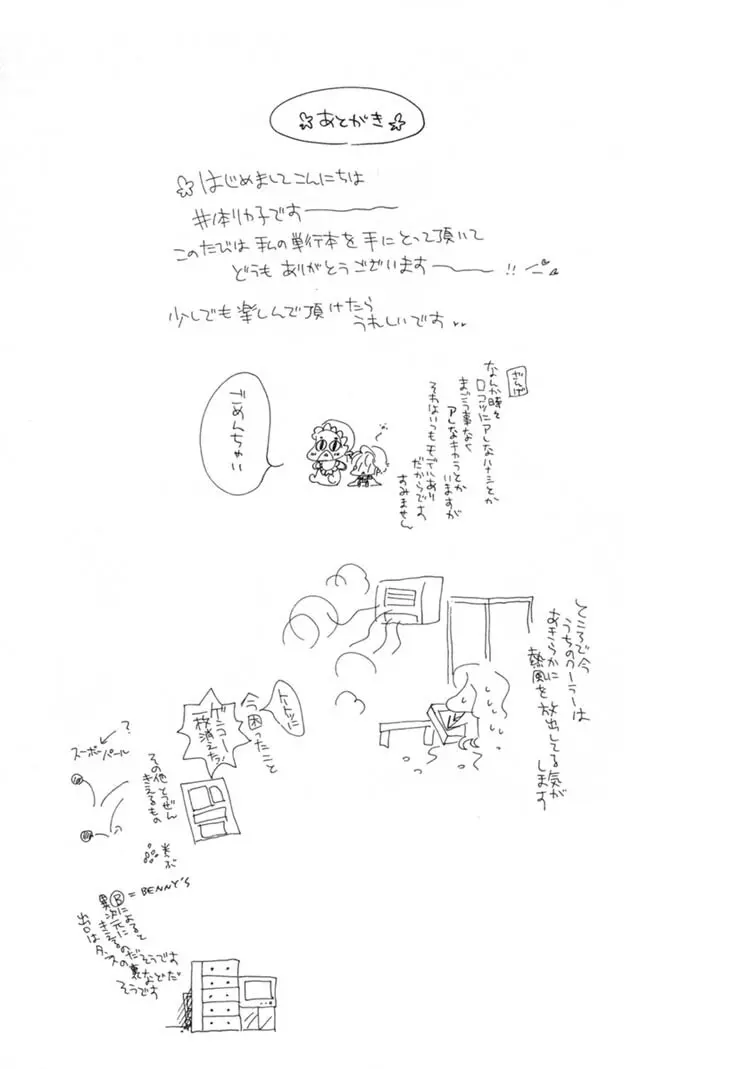 ☆あとがき☆
☆はじめましてこんにちは
井本リカ子です
このたびは私の単行本を手にとって頂いて
どうもありがとうございます!!
少しでも楽しんで頂けたら
うれしいです
ざんげ
なんか時々
ロコツにアレなハナシとか
まごう事なく
アレなキャラとか
いますが
それはいつもモデルあり
だからです
すみません
ごめんちゃい
ところで今
うちのクーラーは
あきらかに
熱風を放出してる気が
します
トートツに
今困ったこと
ゲンコー
一枚消えた!
その他とうぜん
きえるもの
?
スーパーボール
米ぶ
B = BENNY'S
によると
異次元に
きえるのだそうです
出口は
タンスの裏などだ
そうです